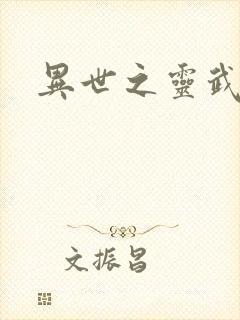 異世之靈武
文振昌